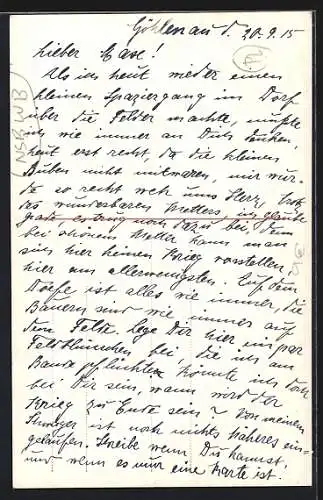 Göhlenau d. 20.9.15
(14)
Lieber Maxe!
Als ich heut wieder einen
kleinen Spaziergang im Dorf
über die Felder machte, mußte
ich wie immer an Dich denken,
heut erst recht, da die kleinen
Buben nicht mitwaren, mir wur-
de so recht weh ums Herz, trotz
des wunderbaren Wetters, ich glaube
grade, es trug noch dazu bei, denn
bei schönem Wetter kann man
sich hier keinen Krieg vorstellen,
hier am allerwenigsten. Auf dem
Dorfe ist alles wie immer, die
Bauern sind wie immer auf
dem Felde. Lege Dir hier ein paar
Feldblümchen bei, die ich am
Rande pflückte. Könnte ich doch
bei Dir sein, wann wird der
Krieg zu Ende sein? Von meinem
Schwager ist noch nichts näheres ein-
gelaufen. Schreibe wenn Du kannst
und wenn es nur eine Karte ist!